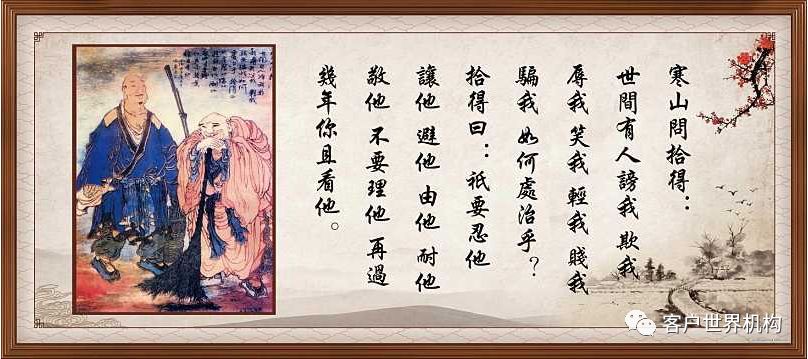 寒山問拾得：
世間有人謗我 欺我
辱我 笑我 輕我 賤我
騙我 如何處治乎？
拾得曰：祇要忍他
讓他 避他 由他 耐他
敬他 不要理他 再過
幾年你且看他。
客户世界机构